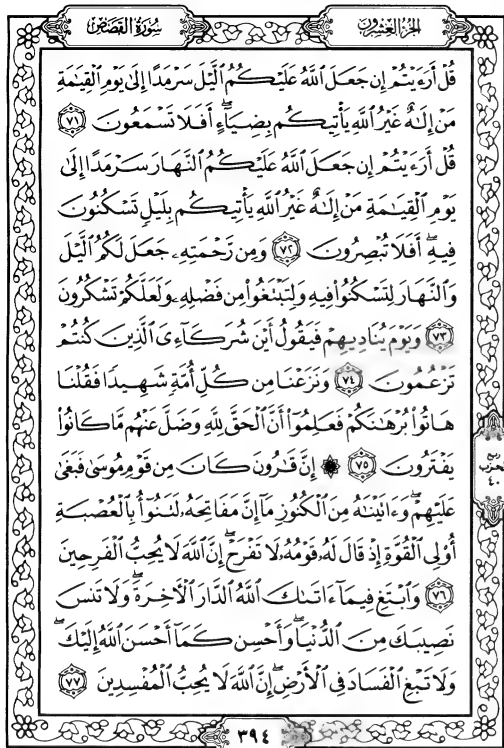 سُورَةُ القَصَصِ
الجُزءُ العِشْرُونَ
قُلْ أَرَءَيْتُمْ إِن جَعَلَ ٱللَّهُ عَلَيْكُمُ ٱلَّيْلَ سَرْمَدًا إِلَىٰ يَوْمِ ٱلْقِيَٰمَةِ
مَنْ إِلَٰهٌ غَيْرُ ٱللَّهِ يَأْتِيكُم بِضِيَآءٍ ۖ أَفَلَا تَسْمَعُونَ ٧١
قُلْ أَرَءَيْتُمْ إِن جَعَلَ ٱللَّهُ عَلَيْكُمُ ٱلنَّهَارَ سَرْمَدًا إِلَىٰ
يَوْمِ ٱلْقِيَٰمَةِ مَنْ إِلَٰهٌ غَيْرُ ٱللَّهِ يَأْتِيكُم بِلَيْلٍ تَسْكُنُونَ
فِيهِ ۖ أَفَلَا تُبْصِرُونَ ٧٢ وَمِن رَّحْمَتِهِۦ جَعَلَ لَكُمُ ٱلَّيْلَ
وَٱلنَّهَارَ لِتَسْكُنُوا۟ فِيهِ وَلِتَبْتَغُوا۟ مِن فَضْلِهِۦ وَلَعَلَّكُمْ تَشْكُرُونَ
٧٣ وَيَوْمَ يُنَادِيهِمْ فَيَقُولُ أَيْنَ شُرَكَآءِىَ ٱلَّذِينَ كُنتُمْ
تَزْعُمُونَ ٧٤ وَنَزَعْنَا مِن كُلِّ أُمَّةٍ شَهِيدًا فَقُلْنَا
هَاتُوا۟ بُرْهَٰنَكُمْ فَعَلِمُوٓا۟ أَنَّ ٱلْحَقَّ لِلَّهِ وَضَلَّ عَنْهُم مَّا كَانُوا۟
يَفْتَرُونَ ٧٥ ۞ إِنَّ قَٰرُونَ كَانَ مِن قَوْمِ مُوسَىٰ فَبَغَىٰ
عَلَيْهِمْ ۖ وَءَاتَيْنَٰهُ مِنَ ٱلْكُنُوزِ مَآ إِنَّ مَفَاتِحَهُۥ لَتَنُوٓأُ بِٱلْعُصْبَةِ
أُو۟لِى ٱلْقُوَّةِ إِذْ قَالَ لَهُۥ قَوْمُهُۥ لَا تَفْرَحْ ۖ إِنَّ ٱللَّهَ لَا يُحِبُّ ٱلْفَرِحِينَ
٧٦ وَٱبْتَغِ فِيمَآ ءَاتَىٰكَ ٱللَّهُ ٱلدَّارَ ٱلْءَاخِرَةَ ۖ وَلَا تَنسَ
نَصِيبَكَ مِنَ ٱلدُّنْيَا ۖ وَأَحْسِن كَمَآ أَحْسَنَ ٱللَّهُ إِلَيْكَ ۖ
وَلَا تَبْغِ ٱلْفَسَادَ فِى ٱلْأَرْضِ ۖ إِنَّ ٱللَّهَ لَا يُحِبُّ ٱلْمُفْسِدِينَ ٧٧
ربع
حزب
٤٠
٣٩٤